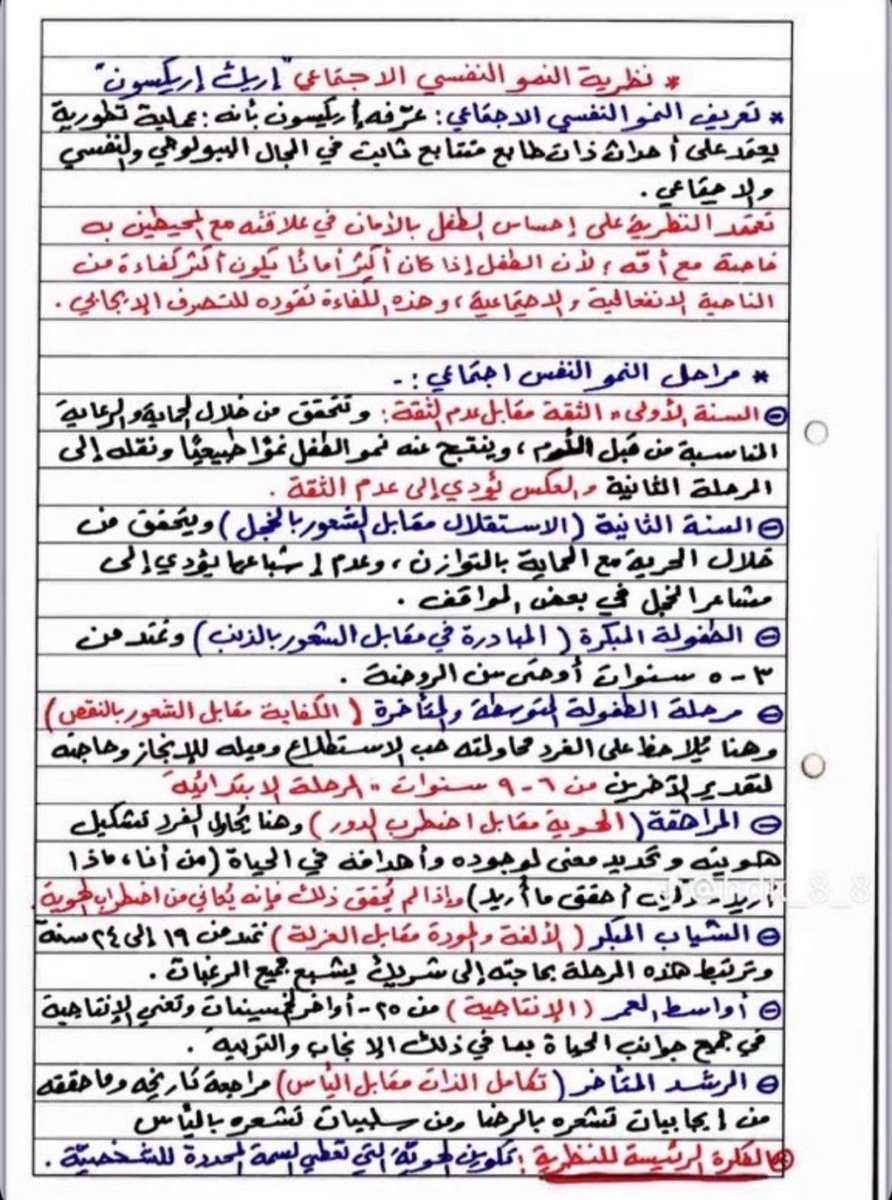 * نظرية النمو النفسي الاجتماعي "إريك إريكسون"
* تعريف النمو النفسي الاجتماعي : عرّفه إريكسون بأنه : عملية تطورية
يعتمد على أحداث ذات طابع متتابع ثابت في المجال البيولوجي والنفسي
والاجتماعي .
تعتمد النظرية على إحساس الطفل بالأمان في علاقته مع المحيطين به
خاصة مع أمّه ؛ لأن الطفل إذا كان أكثر أمانًا يكون أكثر كفاءة من
الناحية الانفعالية والاجتماعية ، وهذه الكفاءة تقوده للتصرف الإيجابي .
* مراحل النمو النفس اجتماعي : -
السنة الأولى " الثقة مقابل عدم الثقة : وتتحقق من خلال الحماية والرعاية
المناسبة من قبل الأم ، وينتج عنه نمو الطفل نموًا طبيعيًا ونقله إلى
المرحلة الثانية والعكس يؤدي إلى عدم الثقة .
السنة الثانية ( الاستقلال مقابل الشعور بالخجل ) ويتحقق من
خلال الحرية مع الحماية بالتوازن ، وعدم إشباعها يؤدي إلى
مشاعر الخجل في بعض المواقف .
الطفولة المبكرة ( المبادرة في مقابل الشعور بالذنب ) وتمتد من
٣ - ٥ سنوات أو حتى سن الروضة .
مرحلة الطفولة المتوسطة والمتأخرة ( الكفاية مقابل الشعور بالنقص )
وهنا يُلاحظ على الفرد محاولته حب الاستطلاع وميله للإنجاز وحاجته
لتقدير الآخرين من ٦ - ٩ سنوات " المرحلة الابتدائية "
المراهقة ( الهوية مقابل اضطرب الدور ) وهنا يحاول الفرد تشكيل
هويته وتحديد معنى لوجوده وأهدافه في الحياة ( من أنا ، ماذا
أريد كيف أحقق ما أريد ) وإذا لم يُحقق ذلك فإنه يُعاني من اضطراب الهوية .
الشباب المبكر ( الألفة والمودة مقابل العزلة ) تمتد من ١٩ إلى ٢٤ سنة
وترتبط هذه المرحلة بحاجته إلى شريك يشبع جميع الرغبات .
أواسط العمر ( الإنتاجية ) من ٢٥ - أواخر الخمسينات وتعني الإنتاجية
في جميع جوانب الحياة بما في ذلك الإنجاب والتربية .
الرشد المتأخر ( تكامل الذات مقابل اليأس ) مراجعة تاريخه وما حققه
من إيجابيات تشعره بالرضا ومن سلبيات تشعره باليأس
الفكرة الرئيسة للنظرية : تكوين الهويّة التي تعطي السمة المحددة للشخصيّة .